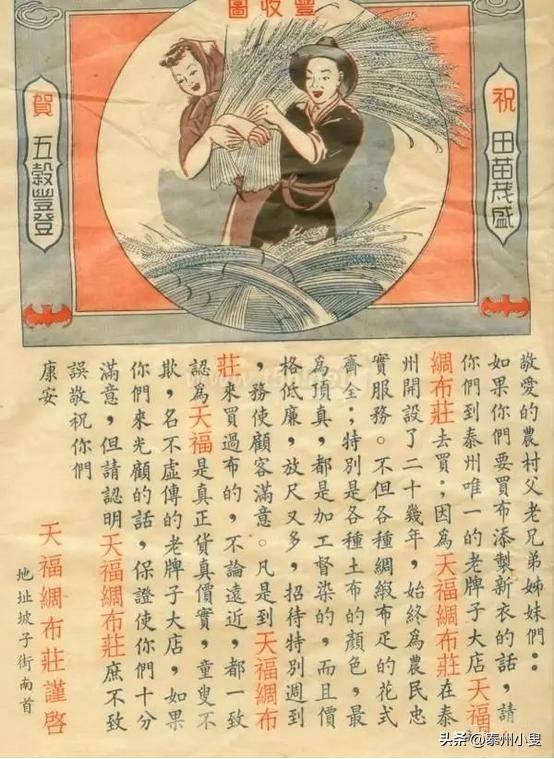 豐收圖
祝 田苗茂盛
賀 五穀豐登
敬愛的農村父老兄弟姊妹們：
如果你們要買布添製新衣的話，請
你們到泰州唯一的老牌子大店天福
綢布莊去買；因為天福綢布莊在泰
州開設了二十幾年，始終為農民忠
實服務。不但各種綢緞布疋的花式
齊全；特別是各種土布的顏色，最
為頂真，都是加工督染的，而且價
格低廉，放尺又多，招待特別週到
，務使顧客滿意。凡是到天福綢布
莊來買過布的，不論遠近，都一致
認為天福是真正貨真價實，童叟不
欺，名不虛傳的老牌子大店，如果
你們來光顧的話，保證使你們十分
滿意，但請認明天福綢布莊庶不致
誤敬祝你們
康安
天福綢布莊謹啓
地址坡子街南首
头条 @泰州小叟